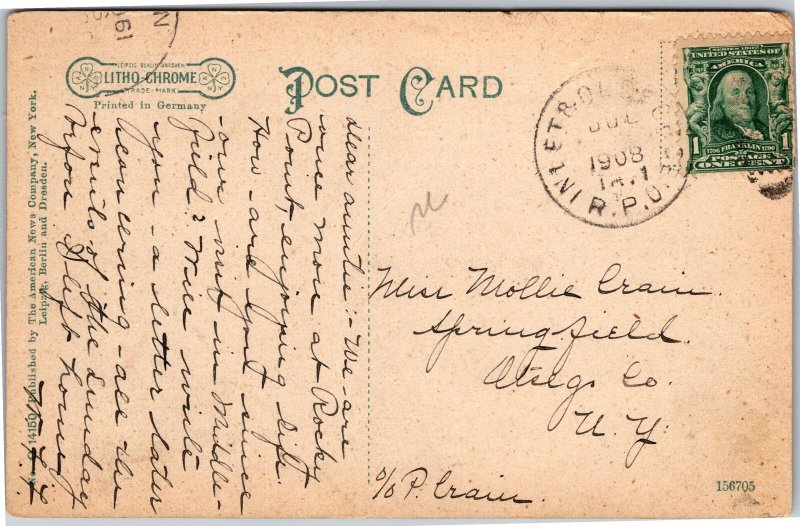 LEIPZIG BERLIN DRESDEN
LITHO-CHROME
TRADE-MARK
Printed in Germany
POST CARD
SERIES 1902
UNITED STATES OF
AMERICA
1706 FRANKLIN 1790
1 1
POSTAGE
ONE CENT
JUL
1908
TR. 1
R.P.O.
Dear auntie:- We are
once more at Rocky
Point, enjoying life.
How are you since
our visit in Middle-
field? Will write
you - a letter later
concerning - all the
events of the Sunday
before I left home
Miss Mollie Crain.
Springfield.
Otsego Co.
N.Y.
c/o P. Crain.
14150 Published by The American News Company, New York.
Leipzig, Berlin and Dresden.
156705